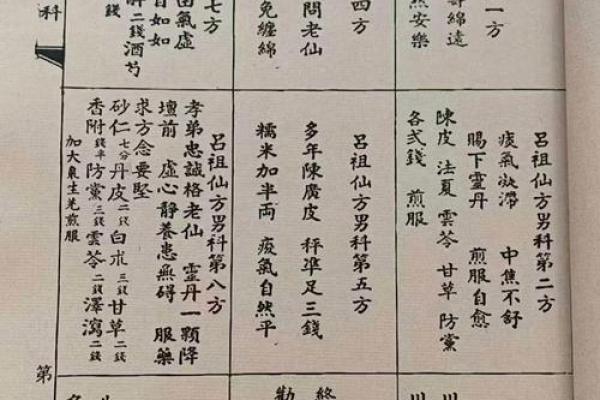 一方
綿遠
安樂
四方
問老仙
免纏綿
七方
氣虛
自如如
二錢酒芍
錢
科
呂祖仙方男科第二方
痰氣凝滯 中焦不舒
賜下靈丹 煎服自愈
陳皮 法夏 雲苓 甘草 防黨
各弍錢 煎服
呂祖仙方男科第五方
多年陳廣皮 秤準足三錢
糯米加半両 痰氣自然平
呂祖仙方男科第八方
孝弟忠誠格老仙 靈丹一顆降
壇前 虛心靜養患無碍 服藥
求方念要堅
砂仁七分丹皮二錢白朮三錢甘草二錢
香附錢半防黨三錢雲苓二錢澤瀉二錢
加大棗生羌煎服
第
終
勸